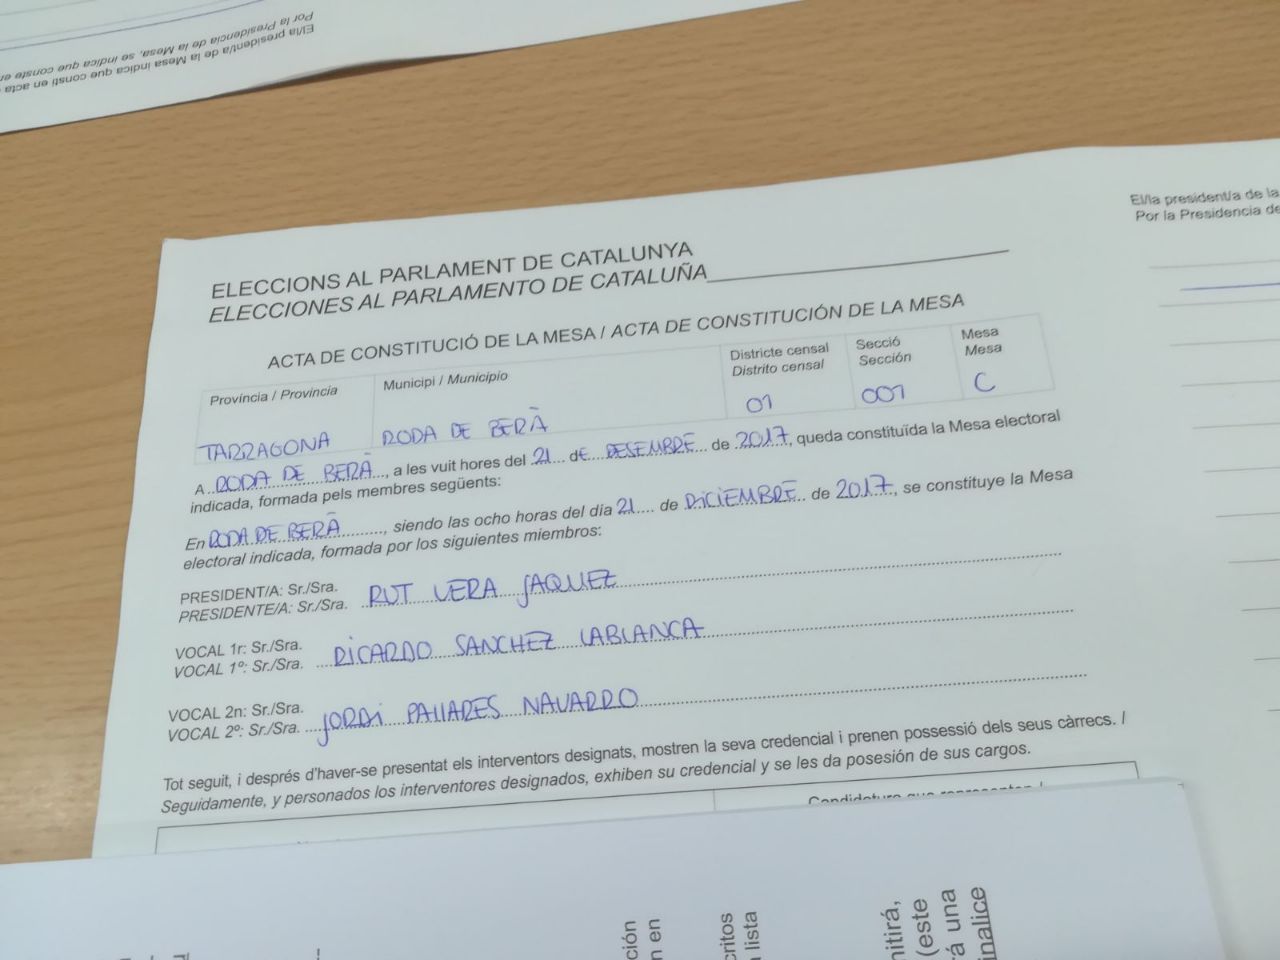 El/la president/a de la Mesa indica que consti en acta
Por la Presidencia de la Mesa, se indica que conste en
El/la president/a de la
Por la Presidencia de
ELECCIONS AL PARLAMENT DE CATALUNYA
ELECCIONES AL PARLAMENTO DE CATALUÑA
ACTA DE CONSTITUCIÓ DE LA MESA / ACTA DE CONSTITUCIÓN DE LA MESA
Província / Provincia
Municipi / Municipio
Districte censal
Distrito censal
Secció
Sección
Mesa
Mesa
TARRAGONA RODA DE BERÀ 01 001 C
A RODA DE BERÀ, a les vuit hores del 21 de DESEMBRE de 2017, queda constituïda la Mesa electoral
indicada, formada pels membres següents:
En RODA DE BERÀ, siendo las ocho horas del día 21 de DICIEMBRE de 2017, se constituye la Mesa
electoral indicada, formada por los siguientes miembros:
PRESIDENT/A: Sr./Sra.
PRESIDENTE/A: Sr./Sra. RUT VERA JAQUEZ
VOCAL 1r: Sr./Sra.
VOCAL 1º: Sr./Sra. RICARDO SANCHEZ LABLANCA
VOCAL 2n: Sr./Sra.
VOCAL 2º: Sr./Sra. JORDI PALLARES NAVARRO
Tot seguit, i després d'haver-se presentat els interventors designats, mostren la seva credencial i prenen possessió dels seus càrrecs. /
Seguidamente, y personados los interventores designados, exhiben su credencial y se les da posesión de sus cargos.
Candidatura que representen /
ción
n en
critos
lista
mitirá,
(este
rá una
inalice